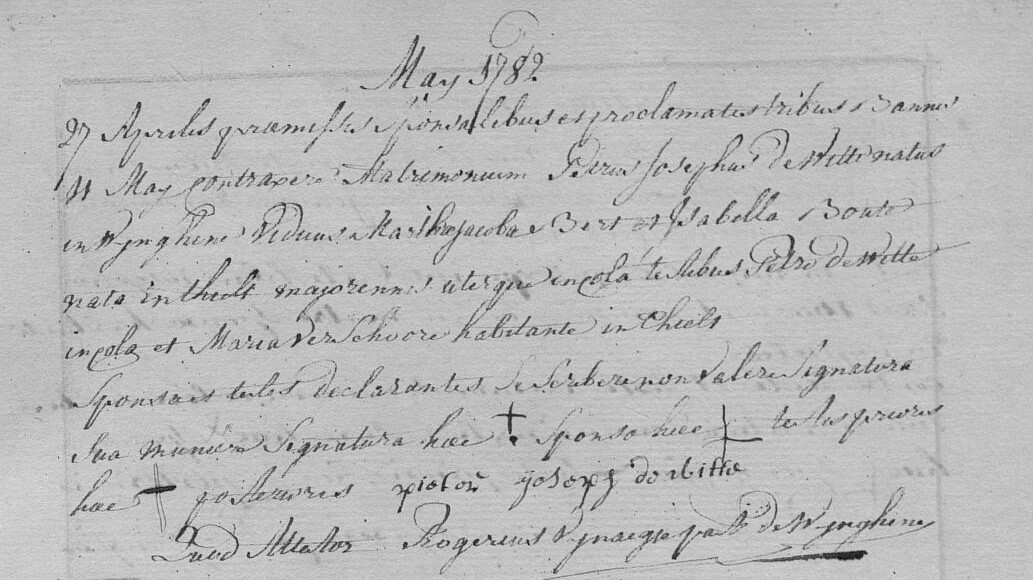 May 1782
27 Aprilis præmissis sponsalibus et proclamatis tribus Bannis
11 May contraxere Matrimonium Petrus Josephus De Witte natus
in Wynghene Viduus Mariæ Jacobæ Bert et Isabella Bouto
nata in thielt majorennis uterque incola testibus Petro de Witte
incola et Maria VerSchoore habitante in Thielt
Sponsa et testes declarantes Se Scribere non Valere Signatura
Sua muniere Signatura hæc + Sponsa hæc + testis prioris
hæc + posterioris pieter joseph de witte
Quod Attestor Rogerius past de Wynghene